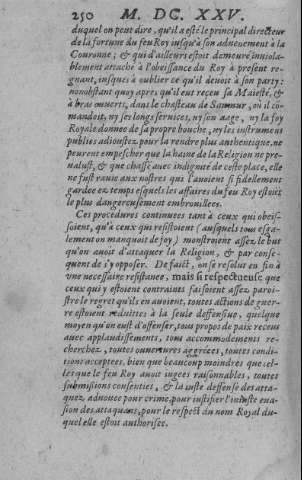 250 M. DC. XXV.
duquel on peut dire, qu'il a esté le principal directeur
de la fortune du feu Roy iusqu'à son aduenement à la
Couronne; & qui d'ailleurs estoit demeuré inuiola-
blement attaché à l'obeissance du Roy à present re-
gnant, iusques à oublier ce qu'il deuoit à son party:
nonobstant quoy apres qu'il eut receu sa Maiesté, &
à bras ouuerts, dans le chasteau de Saumur, où il com-
mandoit, ny ses longs seruices, ny son aage, ny la foy
Royale donnee de sa propre bouche, ny les instrumens
publics adioustez pour la rendre plus authentique, ne
peurent empescher que la haine de la Religion ne pre-
ualust, & que chassé auec indignité de ceste place, elle
ne fust rauie aux nostres que l'auoient si fidellement
gardee ez temps esquels les affaires du feu Roy estoiẽt
le plus dangereusement embrouillees.
Ces procedures continuees tant à ceux qui obeis-
soient, qu'à ceux qui resistoient (ausquels tous esga-
lement on manquoit de foy) monstroient assez le but
qu'on auoit d'attaquer la Religion, & par conse-
quent de s'y opposer. De faict, on se resolut en fin à
vne necessaire resistance, mais si respectueuse que
ceux qui y estoient contraints faisoient assez paroi-
stre le regret qu'ils en auoient, toutes actions de guer-
re estoient reduittes à la seule deffensiue, quelque
moyen qu'on eust d'offenser, tous propos de paix receus
auec applaudissements, tous accommodements re-
cherchez, toutes ouuertures aggreées, toutes condi-
tions acceptees, bien que beaucoup moindres que cel-
les que le feu Roy auoit iugees raisonnables, toutes
submissions consenties, & la iuste deffense des atta-
quez aduoüee pour crime, pour iustifier l'iniuste inua-
sion des attaquans, pour le respect du nom Royal du-
quel elle estoit authorisee.